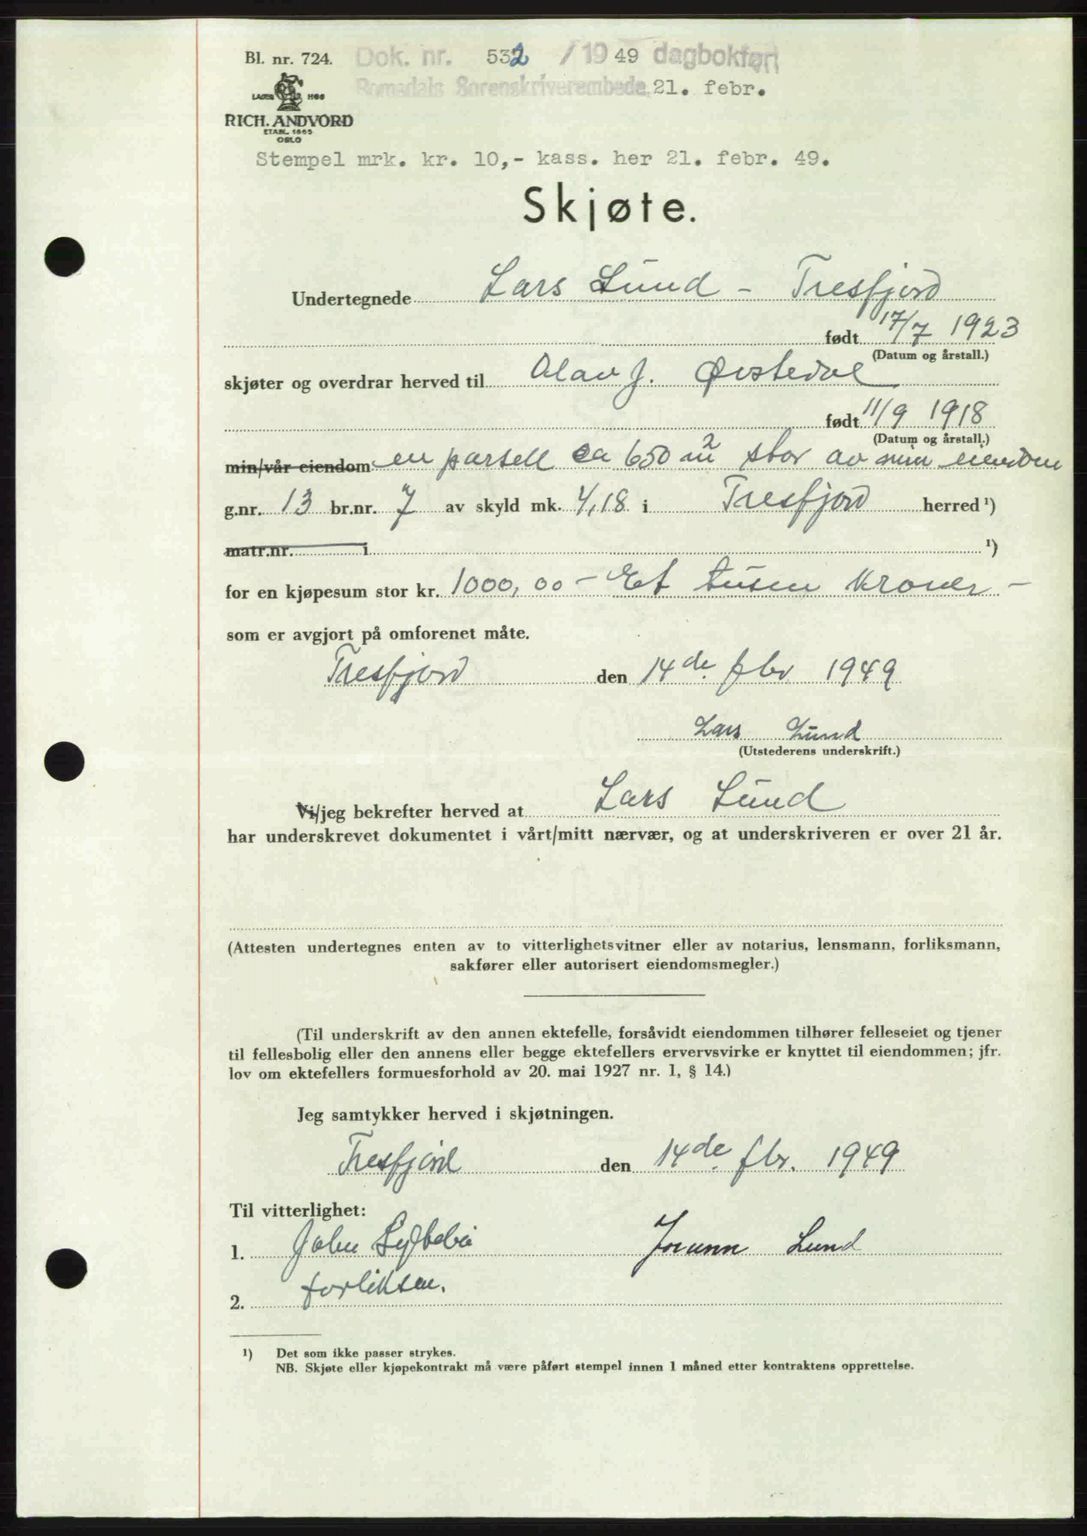 Bl. nr. 724. Dok. nr. 532 / 1949 dagbokført
LAGER H66 Romsdals Sorenskriverembede 21. febr.
RICH. ANDVORD
ETABL. 1865
OSLO
Stempel mrk. kr. 10,- kass. her 21. febr. 49.
Skjøte.
Undertegnede Lars Lund - Tresfjord
født 17/7 1923
(Datum og årstall.)
skjøter og overdrar herved til Olav J. Øvstedal
født 11/9 1918
(Datum og årstall.)
min/vår eiendom en parsell ca 650 m2 stor av min eiendom
g.nr. 13 br.nr. 7 av skyld mk. 4,18 i Tresfjord herred ¹)
matr.nr. i ¹)
for en kjøpesum stor kr. 1000,00 - Et tusen kroner -
som er avgjort på omforenet måte.
Tresfjord den 14de. fbr 1949
Lars Lund
(Utstederens underskrift.)
Vi/jeg bekrefter herved at Lars Lund
har underskrevet dokumentet i vårt/mitt nærvær, og at underskriveren er over 21 år.
(Attesten undertegnes enten av to vitterlighetsvitner eller av notarius, lensmann, forliksmann,
sakfører eller autorisert eiendomsmegler.)
(Til underskrift av den annen ektefelle, forsåvidt eiendommen tilhører felleseiet og tjener
til fellesbolig eller den annens eller begge ektefellers ervervsvirke er knyttet til eiendommen; jfr.
lov om ektefellers formuesforhold av 20. mai 1927 nr. 1, § 14.)
Jeg samtykker herved i skjøtningen.
Tresfjord den 14de. fbr. 1949
Til vitterlighet:
1. John Jorunn Lund
2. forliksm.
¹) Det som ikke passer strykes.
NB. Skjøte eller kjøpekontrakt må være påført stempel innen 1 måned etter kontraktens opprettelse.